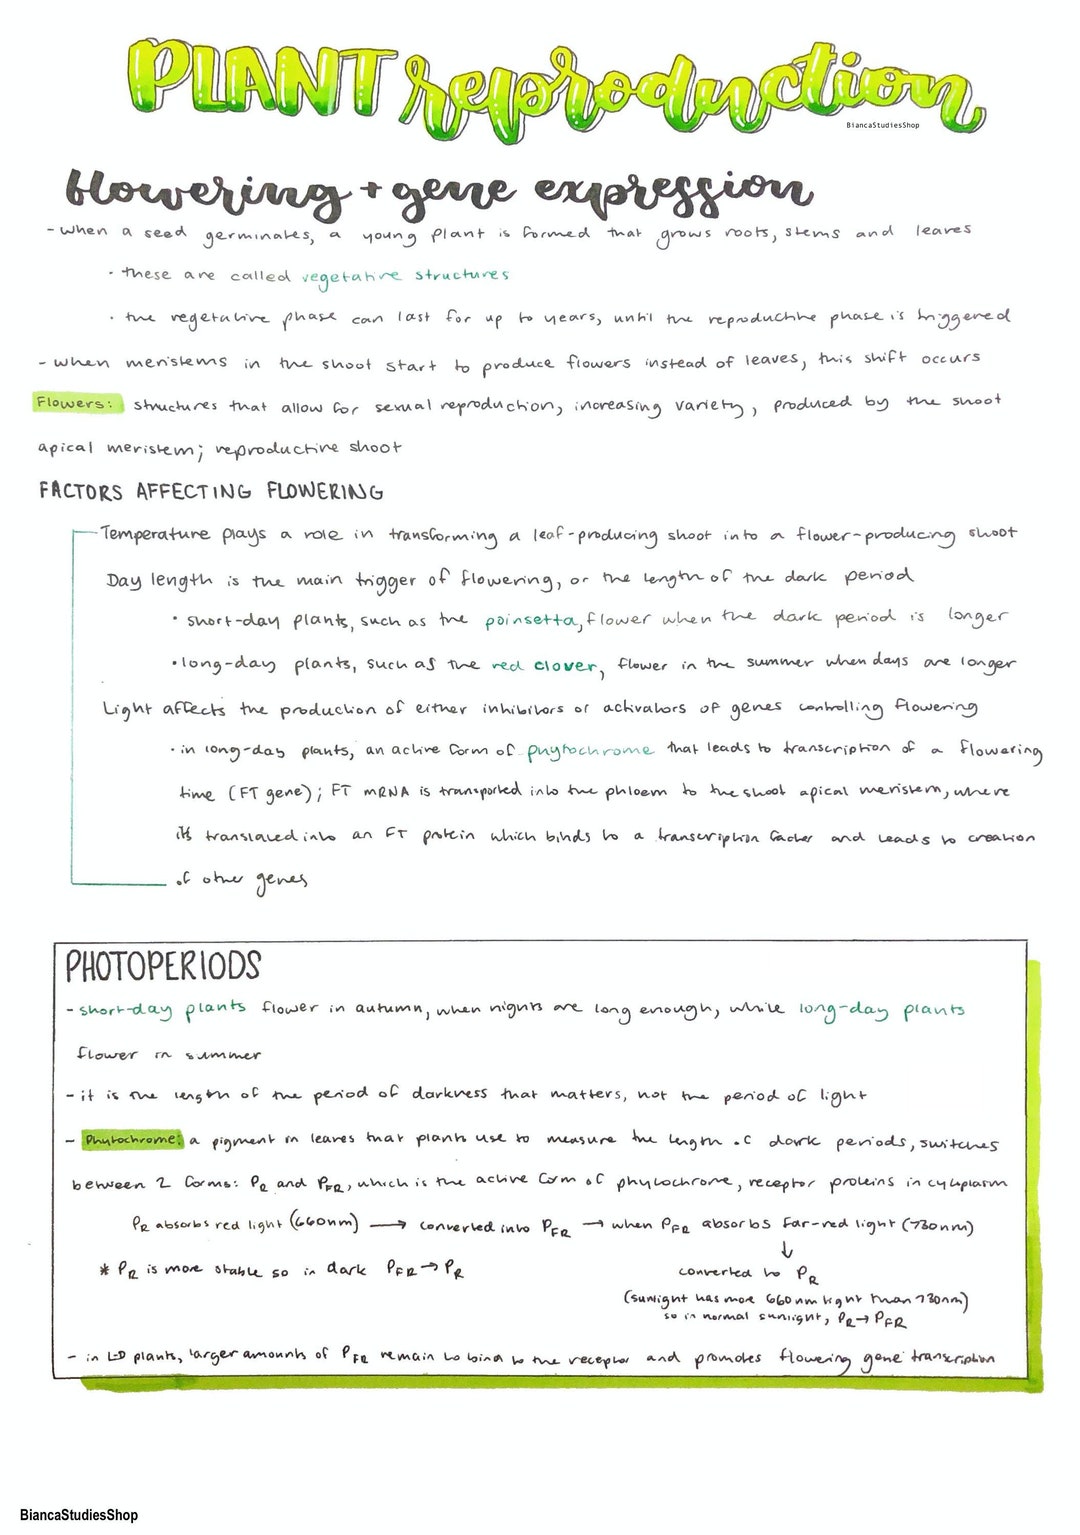 PLANT reproduction
BiancaStudiesShop
flowering + gene expression
- when a seed germinates, a young plant is formed that grows roots, stems and leaves
· these are called vegetative structures
· the vegetative phase can last for up to years, until the reproductive phase is triggered
- when meristems in the shoot start to produce flowers instead of leaves, this shift occurs
Flowers: structures that allow for sexual reproduction, increasing variety, produced by the shoot
apical meristem; reproductive shoot
FACTORS AFFECTING FLOWERING
Temperature plays a role in transforming a leaf-producing shoot into a flower-producing shoot
Day length is the main trigger of flowering, or the length of the dark period
· short-day plants, such as the poinsetta, flower when the dark period is longer
· long-day plants, such as the red clover, flower in the summer when days are longer
Light affects the production of either inhibitors or activators of genes controlling flowering
· in long-day plants, an active form of phytochrome that leads to transcription of a flowering
time (FT gene); FT mRNA is transported into the phloem to the shoot apical meristem, where
its translated into an FT protein which binds to a transcription factor and leads to creation
of other genes
PHOTOPERIODS
- short-day plants flower in autumn, when nights are long enough, while long-day plants
flower in summer
- it is the length of the period of darkness that matters, not the period of light
- Phytochrome: a pigment in leaves that plants use to measure the length of dark periods, switches
between 2 forms: PR and PFR, which is the active form of phytochrome, receptor proteins in cytoplasm
PR absorbs red light (660nm) → converted into PFR → when PFR absorbs far-red light (730nm)
↓
* PR is more stable so in dark PFR → PR
converted to PR
(sunlight has more 660nm light than 730nm)
so in normal sunlight, PR → PFR
- in LD plants, larger amounts of PFR remain to bind to the receptor and promotes flowering gene transcription
BiancaStudiesShop